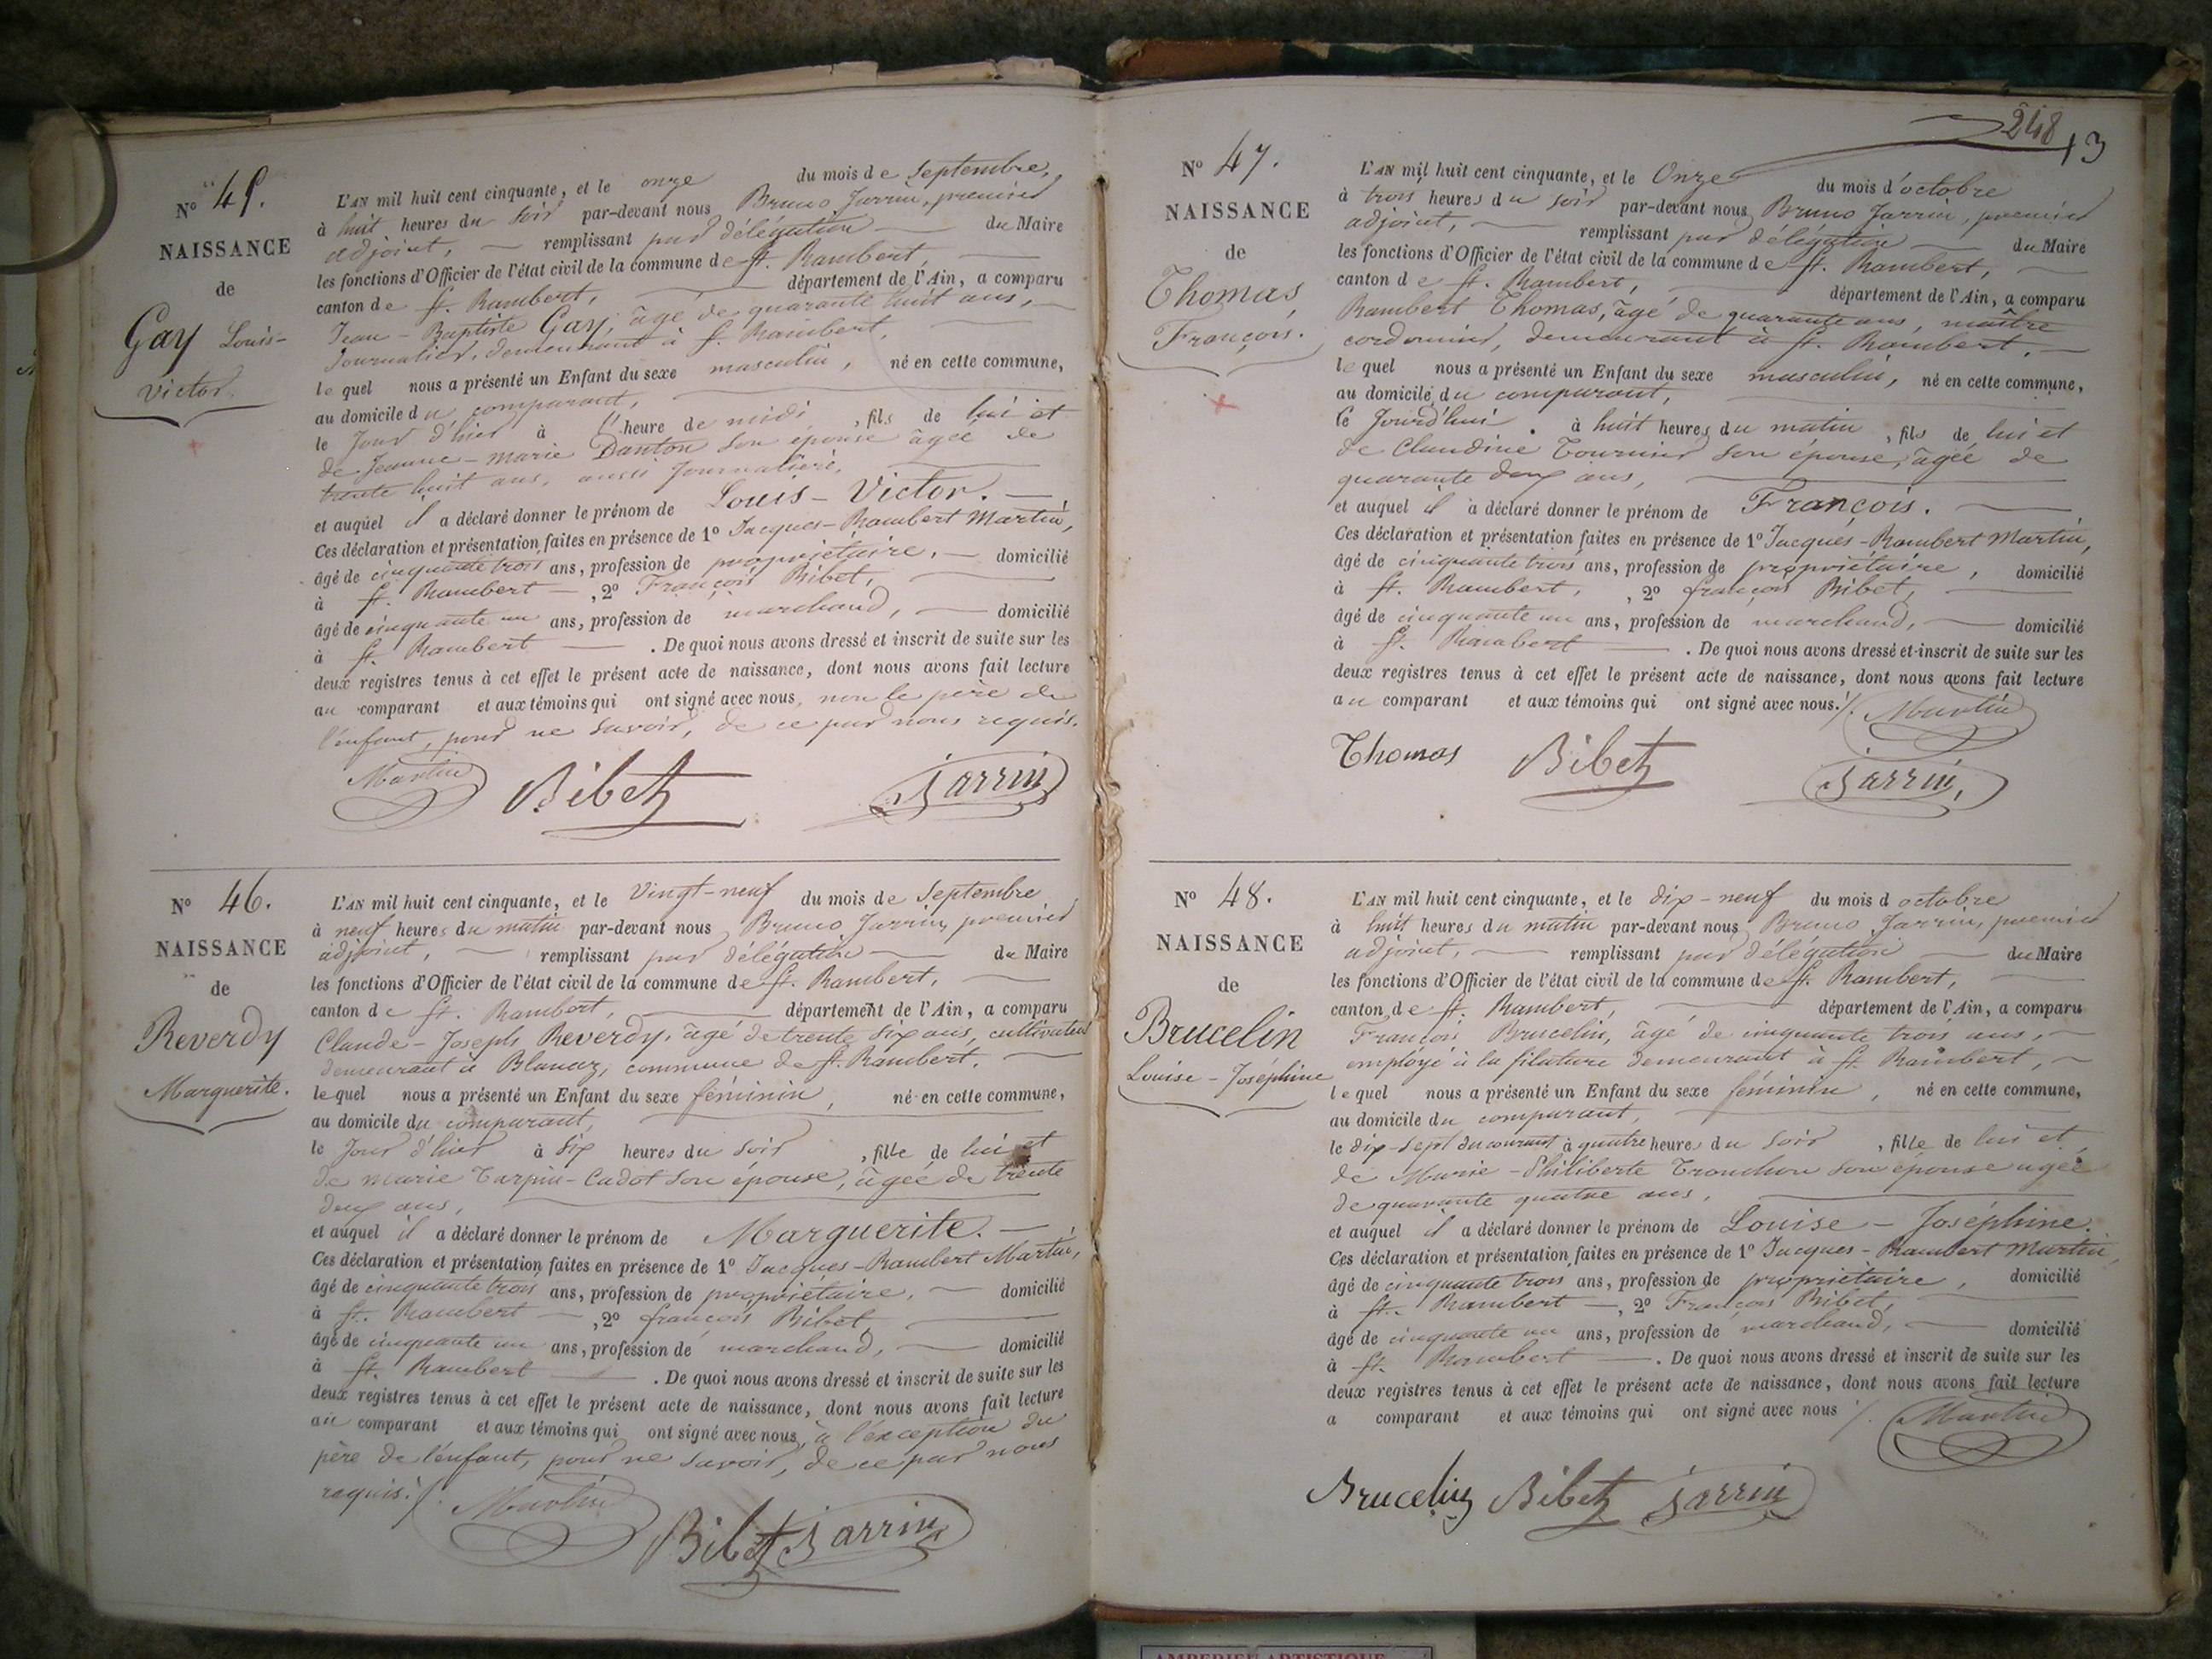 N° 45.
NAISSANCE
de
Gay Louis-
Victor.
L'AN mil huit cent cinquante, et le onze du mois de Septembre,
à huit heures du soir par-devant nous Bruno Jarrin, premier
adjoint, remplissant par délégation du Maire
les fonctions d'Officier de l'état civil de la commune de St. Rambert,
canton de St. Rambert, département de l'Ain, a comparu
Jean-Baptiste Gay, âgé de quarante huit ans,
Journalier, demeurant à St. Rambert,
lequel nous a présenté un Enfant du sexe masculin, né en cette commune,
au domicile du comparant,
le Jour d'hier à l' heure de midi, fils de lui et
de Jeanne-Marie Danton son épouse âgée de
trente huit ans, aussi Journalière,
et auquel il a déclaré donner le prénom de Louis-Victor.
Ces déclaration et présentation faites en présence de 1° Jacques-Rambert Martin,
âgé de cinquante trois ans, profession de propriétaire, domicilié
à St. Rambert, 2° François Bibet,
âgé de cinquante un ans, profession de marchand, domicilié
à St. Rambert. De quoi nous avons dressé et inscrit de suite sur les
deux registres tenus à cet effet le présent acte de naissance, dont nous avons fait lecture
au comparant et aux témoins qui ont signé avec nous, non le père de
l'enfant, pour ne savoir, de ce par nous requis.
Martin Bibet Jarrin
N° 46.
NAISSANCE
de
Reverdy
Marguerite.
L'AN mil huit cent cinquante, et le Vingt-neuf du mois de Septembre
à neuf heures du matin par-devant nous Bruno Jarrin, premier
adjoint, remplissant par délégation du Maire
les fonctions d'Officier de l'état civil de la commune de St. Rambert,
canton de St. Rambert, département de l'Ain, a comparu
Claude-Joseph Reverdy, âgé de trente six ans, cultivateur
demeurant à Blanaz, commune de St. Rambert,
lequel nous a présenté un Enfant du sexe féminin, né en cette commune,
au domicile du comparant,
le Jour d'hier à six heures du soir, fille de lui et
de marie Turpin-Cadot son épouse, âgée de trente
deux ans,
et auquel il a déclaré donner le prénom de Marguerite.
Ces déclaration et présentation faites en présence de 1° Jacques-Rambert Martin,
âgé de cinquante trois ans, profession de propriétaire, domicilié
à St. Rambert, 2° françois Bibet,
âgé de cinquante un ans, profession de marchand, domicilié
à St. Rambert. De quoi nous avons dressé et inscrit de suite sur les
deux registres tenus à cet effet le présent acte de naissance, dont nous avons fait lecture
au comparant et aux témoins qui ont signé avec nous, à l'exception du
père de l'enfant, pour ne savoir, de ce par nous
requis. Martin
Bibet Jarrin
248
13
N° 47.
NAISSANCE
de
Thomas
François.
L'AN mil huit cent cinquante, et le Onze du mois d'octobre
à trois heures du soir par-devant nous Bruno Jarrin, premier
adjoint, remplissant par délégation du Maire
les fonctions d'Officier de l'état civil de la commune de St. Rambert,
canton de St. Rambert, département de l'Ain, a comparu
Rambert Thomas, âgé de quarante ans, maître
cordonnier, demeurant à St. Rambert,
lequel nous a présenté un Enfant du sexe masculin, né en cette commune,
au domicile du comparant,
ce Jourd'hui à huit heures du matin, fils de lui et
de Claudine Tournier son épouse, âgée de
quarante deux ans,
et auquel il a déclaré donner le prénom de François.
Ces déclaration et présentation faites en présence de 1° Jacques-Rambert Martin,
âgé de cinquante trois ans, profession de propriétaire, domicilié
à St. Rambert, 2° françois Bibet,
âgé de cinquante un ans, profession de marchand, domicilié
à St. Rambert. De quoi nous avons dressé et inscrit de suite sur les
deux registres tenus à cet effet le présent acte de naissance, dont nous avons fait lecture
au comparant et aux témoins qui ont signé avec nous. Martin
Thomas Bibet Jarrin
N° 48.
NAISSANCE
de
Brucelin
Louise-Joséphine
L'AN mil huit cent cinquante, et le dix-neuf du mois d octobre
à huit heures du matin par-devant nous Bruno Jarrin, premier
adjoint, remplissant par délégation du Maire
les fonctions d'Officier de l'état civil de la commune de St. Rambert,
canton de St. Rambert, département de l'Ain, a comparu
François Brucelin, âgé de cinquante trois ans,
employé à la filature demeurant à St. Rambert,
lequel nous a présenté un Enfant du sexe féminin, né en cette commune,
au domicile du comparant,
le dix-sept du courant à quatre heures du soir, fille de lui et
de Marie-Philiberte Tronchon son épouse agée
de quarante quatre ans,
et auquel il a déclaré donner le prénom de Louise-Joséphine.
Ces déclaration et présentation faites en présence de 1° Jacques-Rambert Martin,
âgé de cinquante trois ans, profession de propriétaire, domicilié
à St. Rambert, 2° François Bibet,
âgé de cinquante un ans, profession de marchand, domicilié
à St. Rambert. De quoi nous avons dressé et inscrit de suite sur les
deux registres tenus à cet effet le présent acte de naissance, dont nous avons fait lecture
a comparant et aux témoins qui ont signé avec nous Martin
Brucelin Bibet Jarrin
AMBERIEU ARTISTIQUE